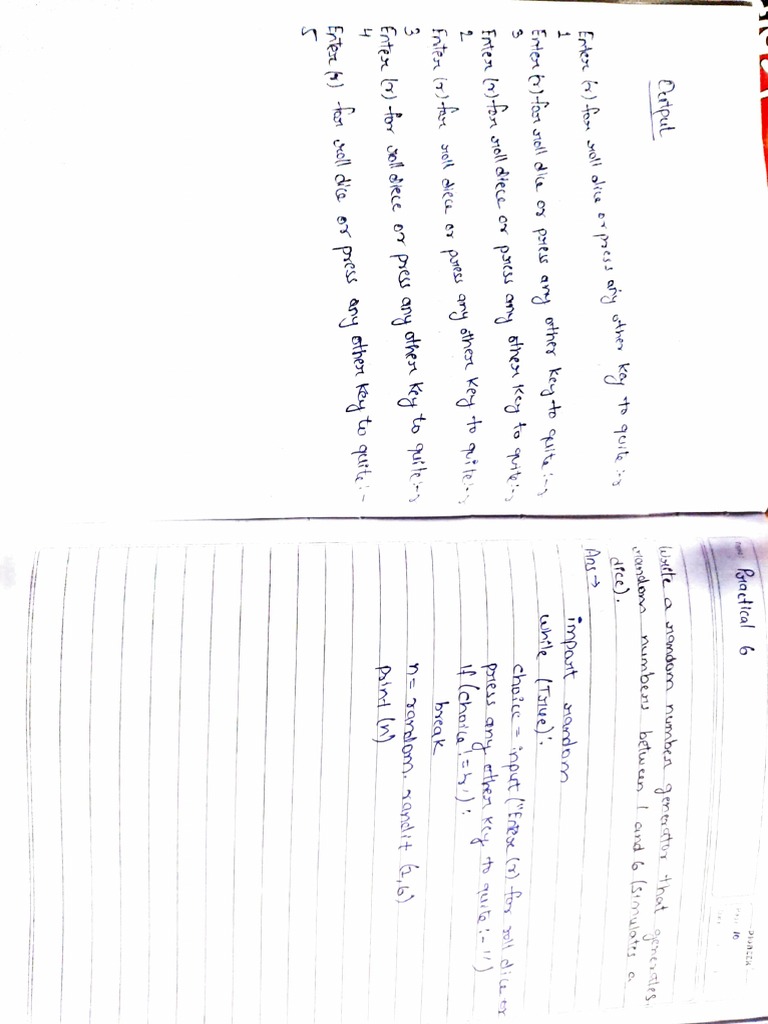 Output
Enter (r) for roll dice or press any other key to quite :->
1
Enter (r) for roll dice or press any other key to quite :->
3
Enter (r) for roll diece or press any other key to quite :->
2
Enter (r) for roll diece or press any other key to quite :->
3
Enter (r) for roll diece or press any other key to quite :->
4
Enter (r) for roll dice or press any other key to quite :-
5
Practical 6
10
Write a random number generator that generates
random numbers between 1 and 6 (simulates a
dice).
Ans →
import random
while (True):
choice = input ("Enter (r) for roll dice or
press any other key to quite :- ")
if (choice != 'r'):
break
n = random. randit (1,6)
print (n)